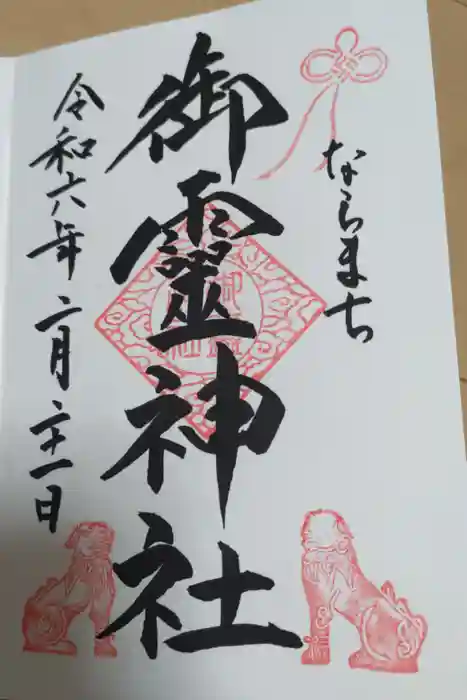 ならまち
御靈神社
令和六年二月二十一日